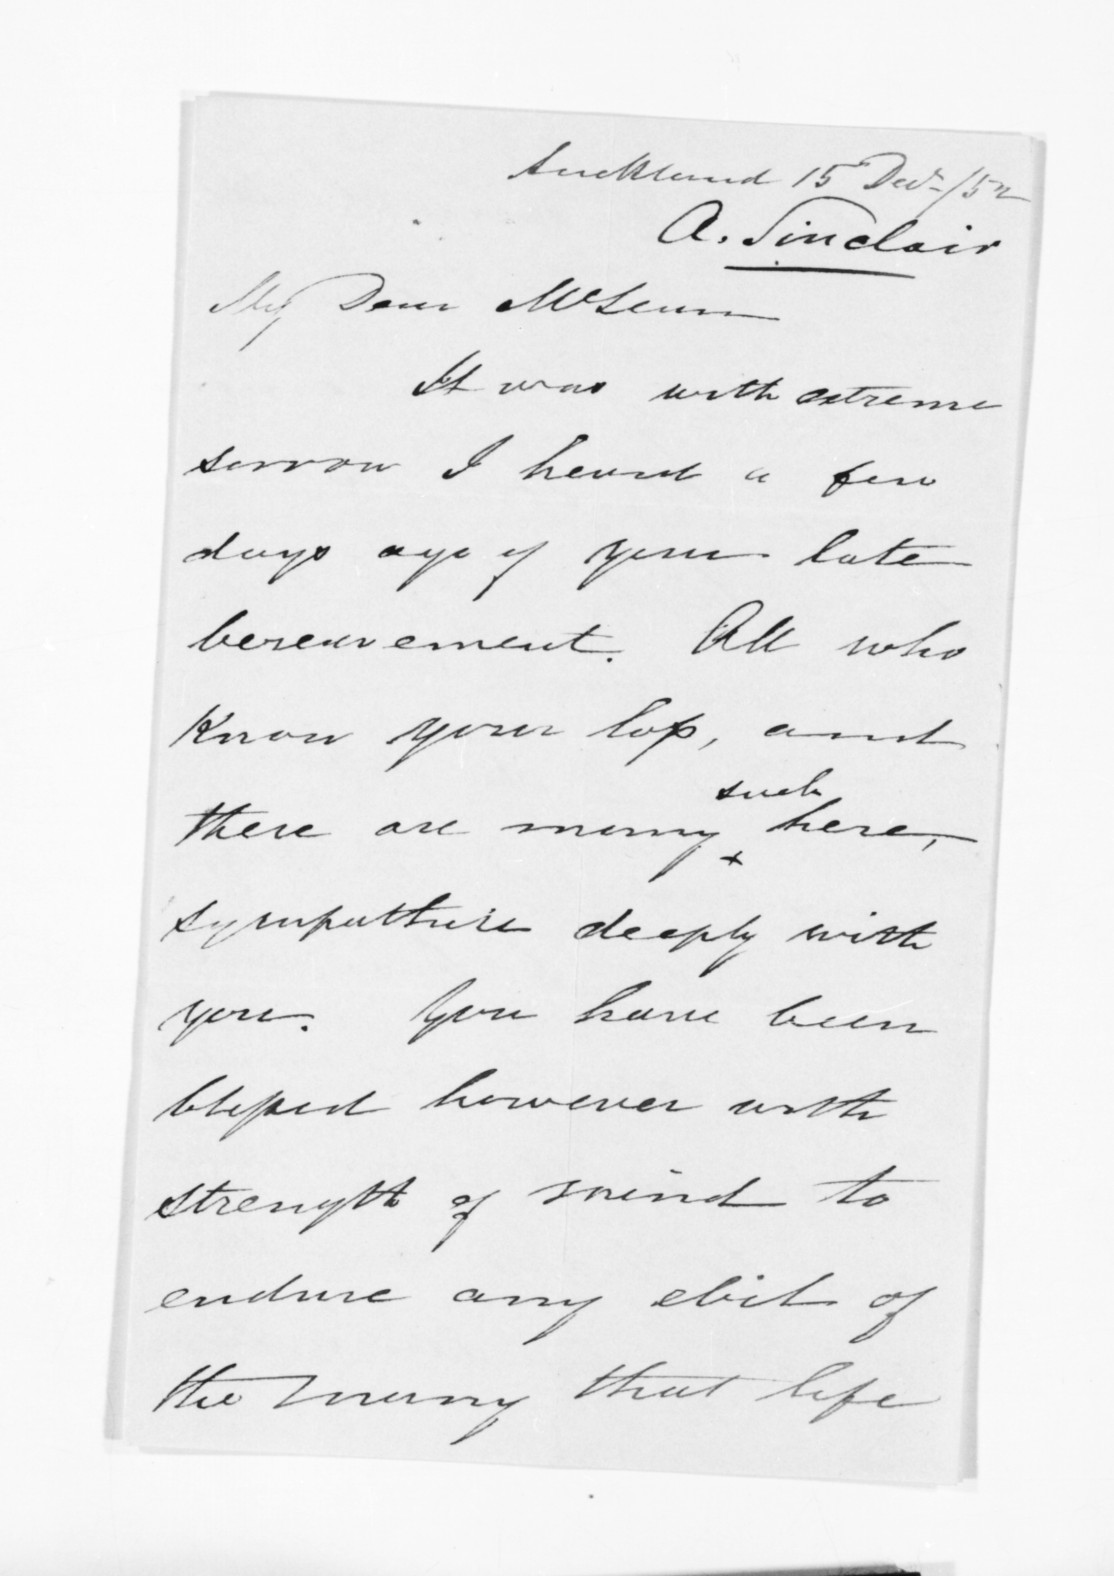 Auckland 15 Decr /52
A. Sinclair
My Dear McLean
It was with extreme
sorrow I heard a few
days ago of your late
bereavement. All who
know your loss, and
such
there are many here,
sympathise deeply with
you. You have been
blessed however with
strength of mind to
endure any evil of
the many that life